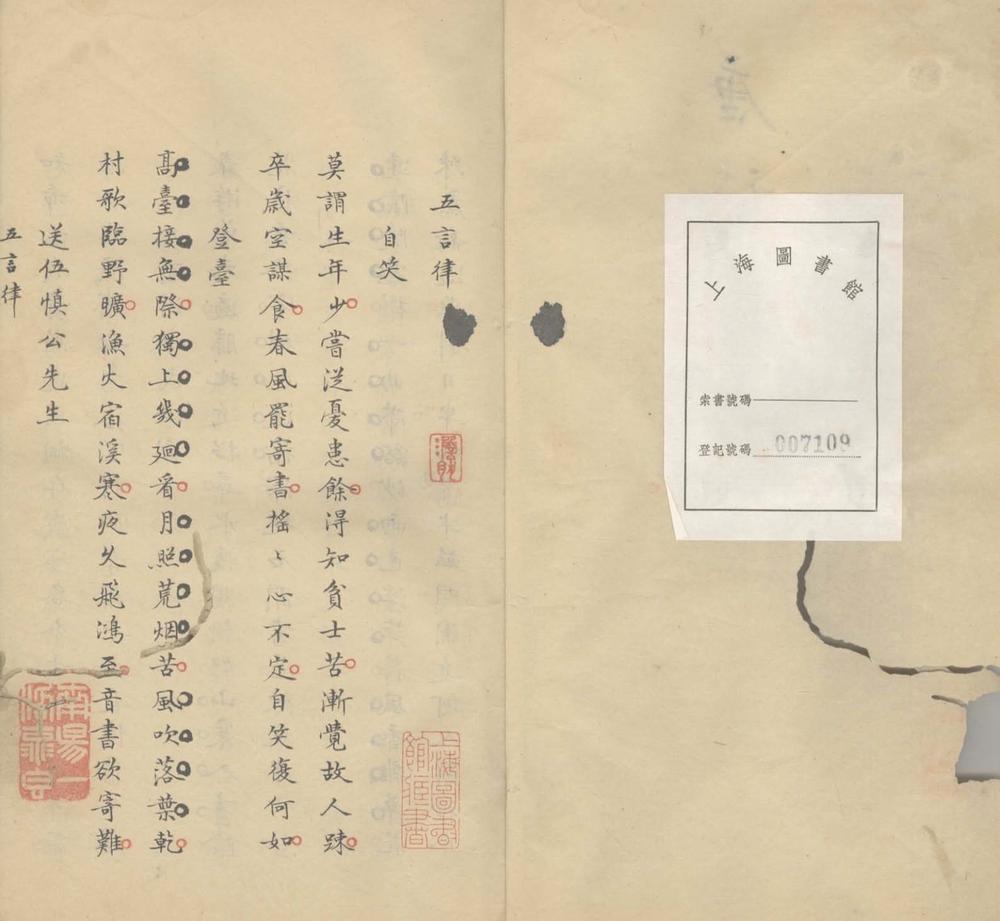 上海圖書館
索書號碼
登記號碼 007109
五言律
自笑
莫謂生年少嘗從憂患餘得知貧士苦漸覺故人踈
卒歲空謀食春風罷寄書搖〻心不定自笑復何如
登臺
髙臺接無際獨上幾廻看月照荒烟苦風吹落葉乾
村歌臨野曠漁火宿溪寒夜久飛鴻至音書欲寄難
送伍慎公先生
五言律
上海圖書館藏書